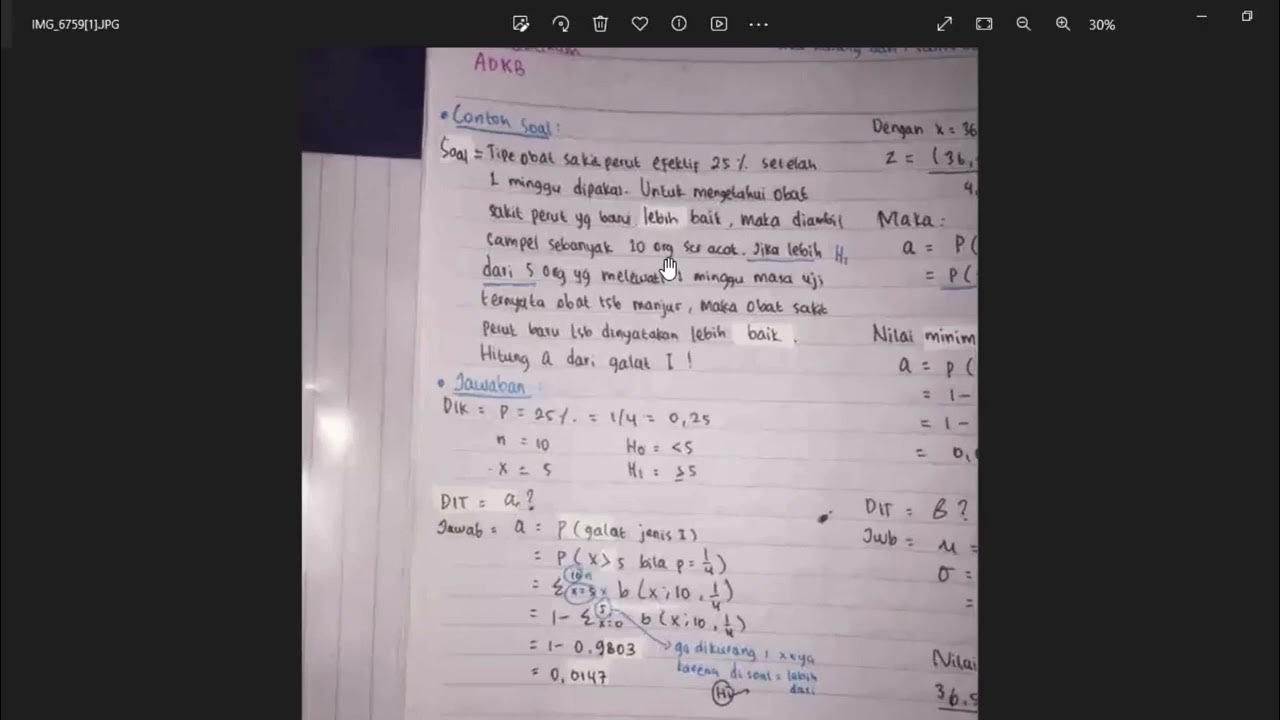 IMG_6759[1].JPG
30%
ADKB
• Contoh Soal:
Soal = Tipe obat sakit perut efektif 25% setelah
1 minggu dipakai. Untuk mengetahui obat
sakit perut yg baru lebih baik, maka diambil
sampel sebanyak 10 org scr acak. Jika lebih H₁
dari 5 org yg melewati 1 minggu masa uji
ternyata obat tsb manjur, maka obat sakit
perut baru tsb dinyatakan lebih baik.
Hitung a dari galat I !
• Jawaban :
DIK = P = 25%. = 1/4 = 0,25
n = 10 H₀ = <5
x = 5 H₁ = ≥5
DIT = a?
Jawab = a = P (galat jenis I)
= P (x > 5 bila p = 1/4)
= Σ 10 x=5 b (x; 10, 1/4)
= 1 - Σ 5 x=0 b (x; 10, 1/4)
= 1 - 0.9803
= 0,0147
ga dikurang 1 x nya
karena di soal = lebih
dari
H₁
Dengan x = 36
Z = (36,
4,
Maka:
a = P(
= P(
Nilai minim
a = P (
= 1 -
= 1 -
= 0,
DIT = B ?
Jwb = μ =
σ =
=
Nilai
36.5